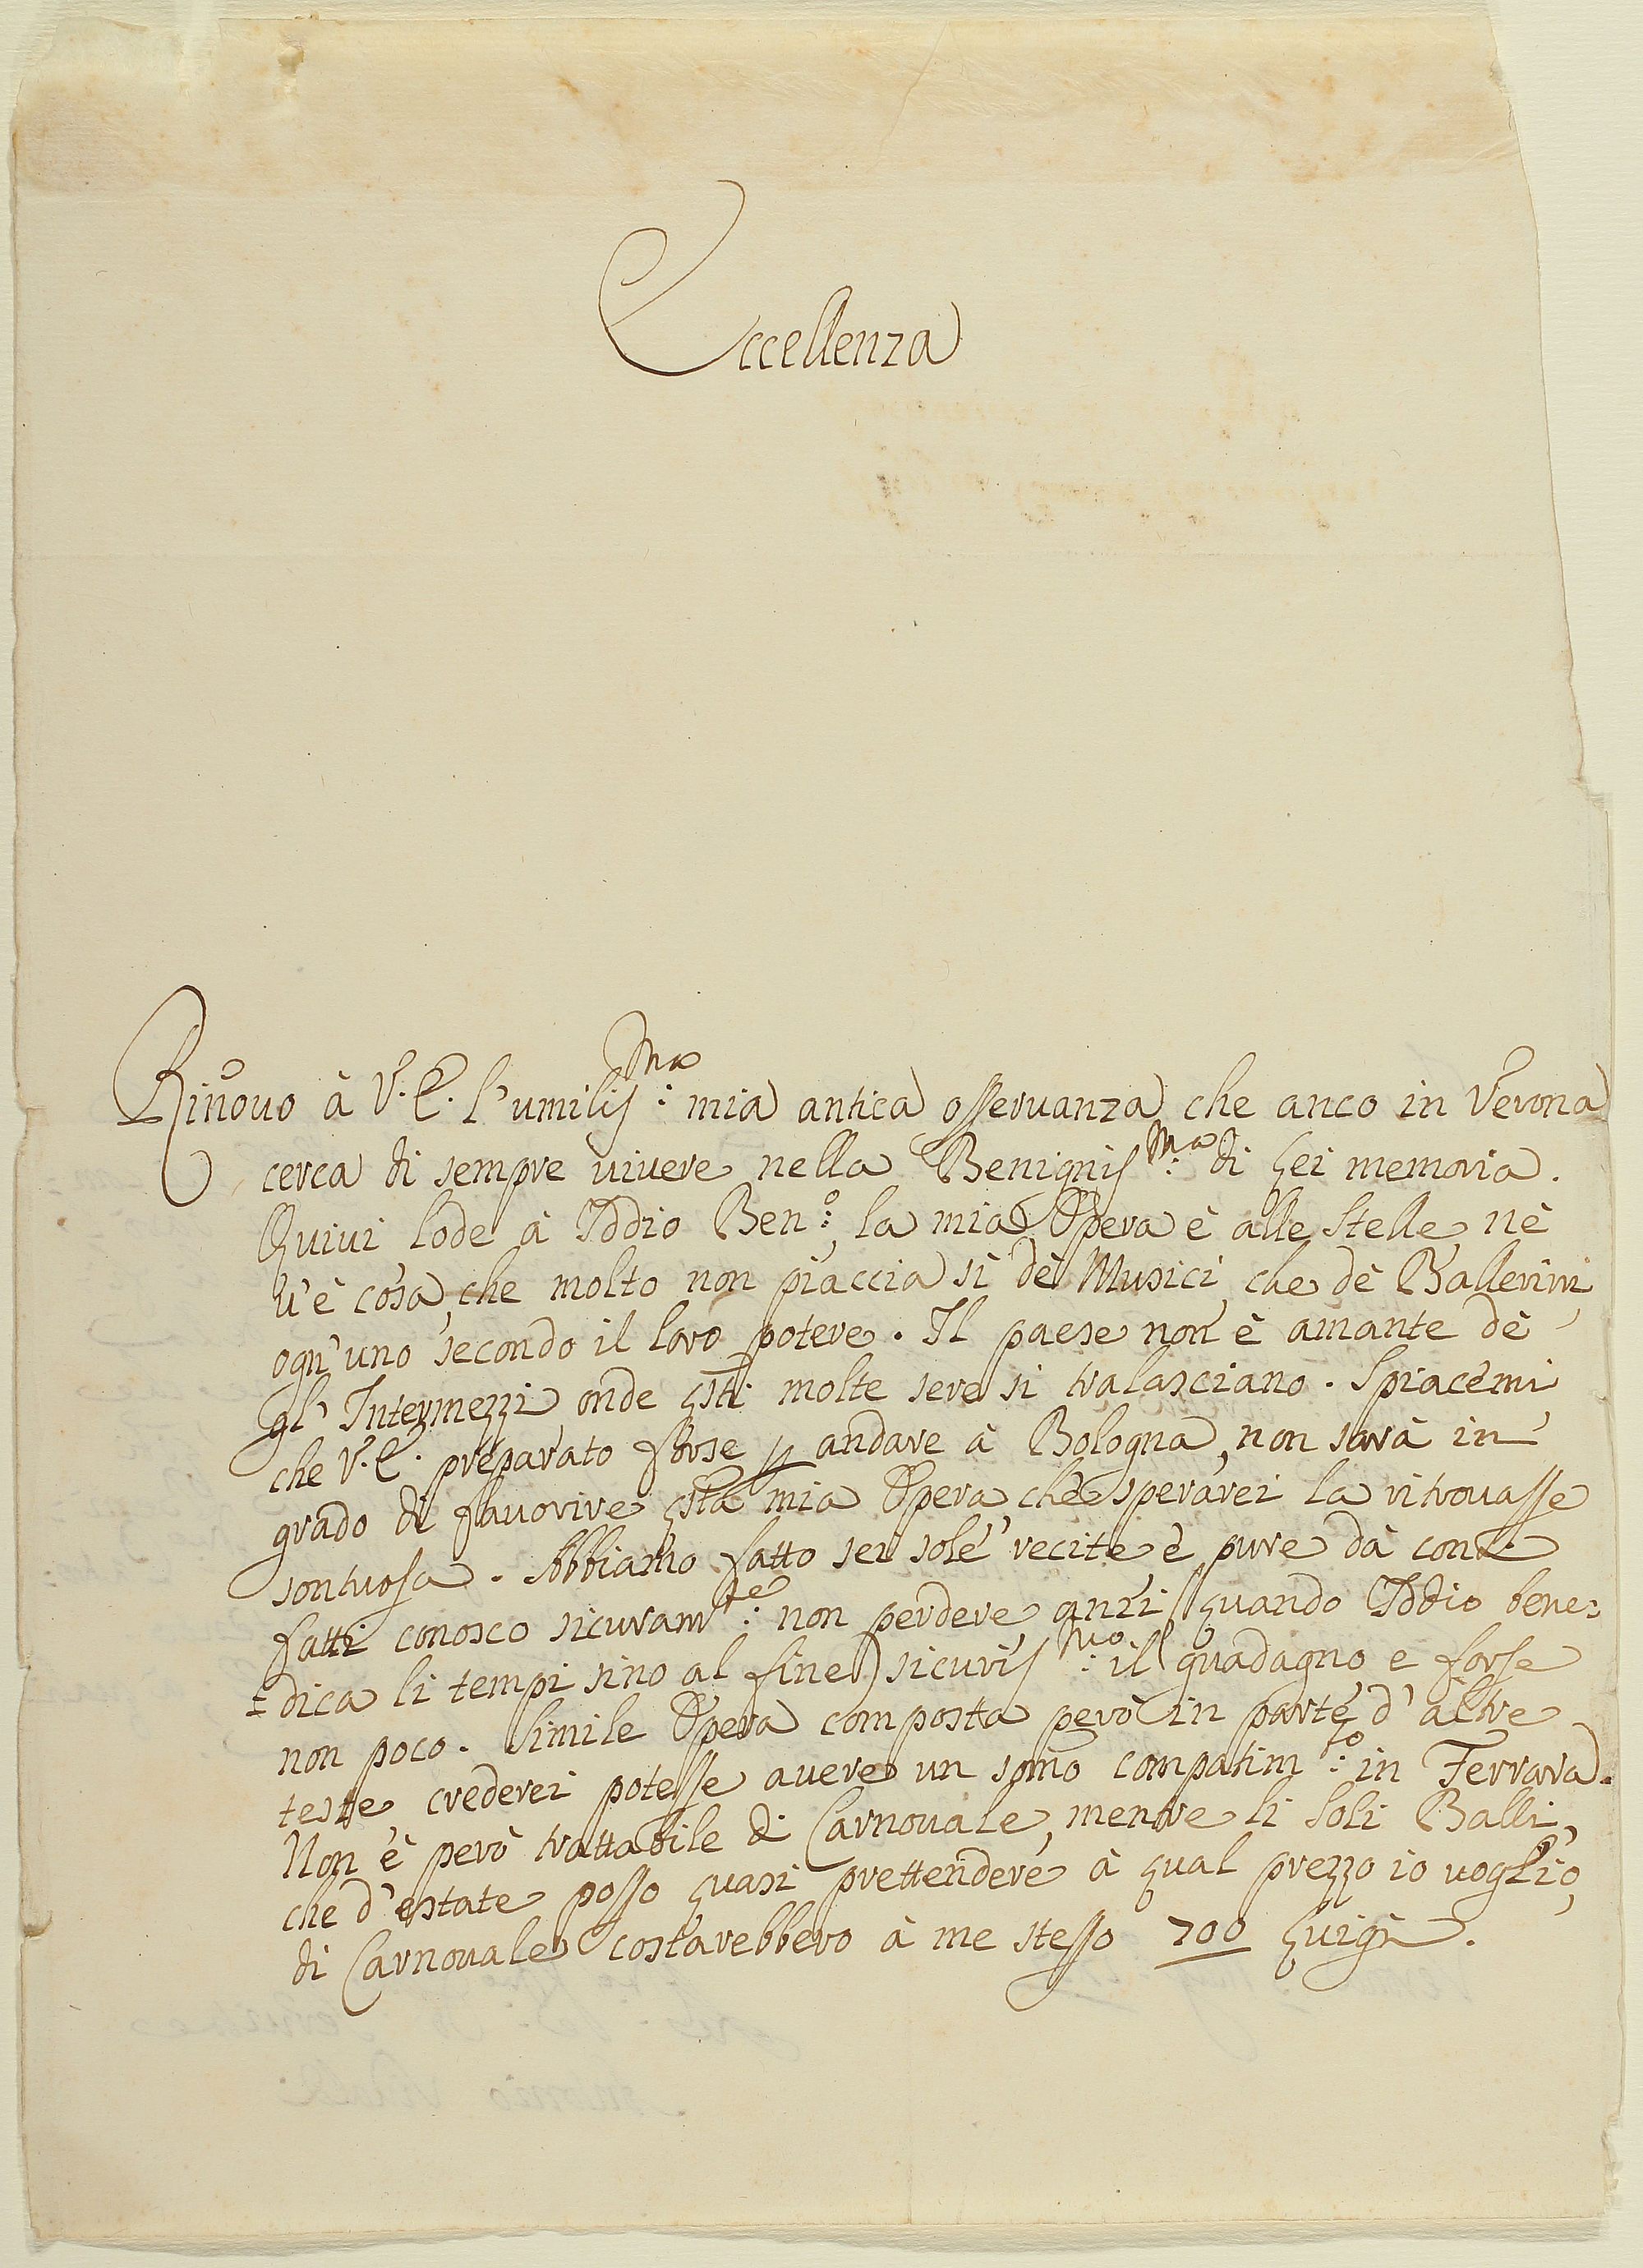 Eccellenza
Rinovo à V. E. l'umiliss:ma mia antica osservanza che anco in Verona
cerca di sempre vivere nella Benigniss:ma di Lei memoria.
Quivi lode à Iddio Ben:o, la mia Opera è alle Stelle, nè
v'è cosa, che molto non piaccia sì dè Musici, che dè Ballerini,
ogn'uno secondo il loro potere. Il paese non è amante dè
gl' Intermezzi onde qsti molte sere si tralasciano. Spiacemi,
che V. E. preparato forse p andare à Bologna, non sarà in
grado di favorire qsta mia Opera, che sperarei la ritrovasse
sontuosa. Abbiamo fatto sei sole recite è pure dà conti
fatti conosco sicuram:te non perdere, anzi (quando Iddio bene=
=dica li tempi sino al fine) sicuriss:mo il guadagno, e forse
non poco. Simile Opera composta però in parte d' altre
teste, crederei potesse avere un somo compatim:to in Ferrara.
Non è però trattabile di Carnovale, mentre li soli Balli,
che d'estate posso quasi prettendere à qual prezzo io voglio,
di Carnovale costarebbero à me stesso 700 Luigi.